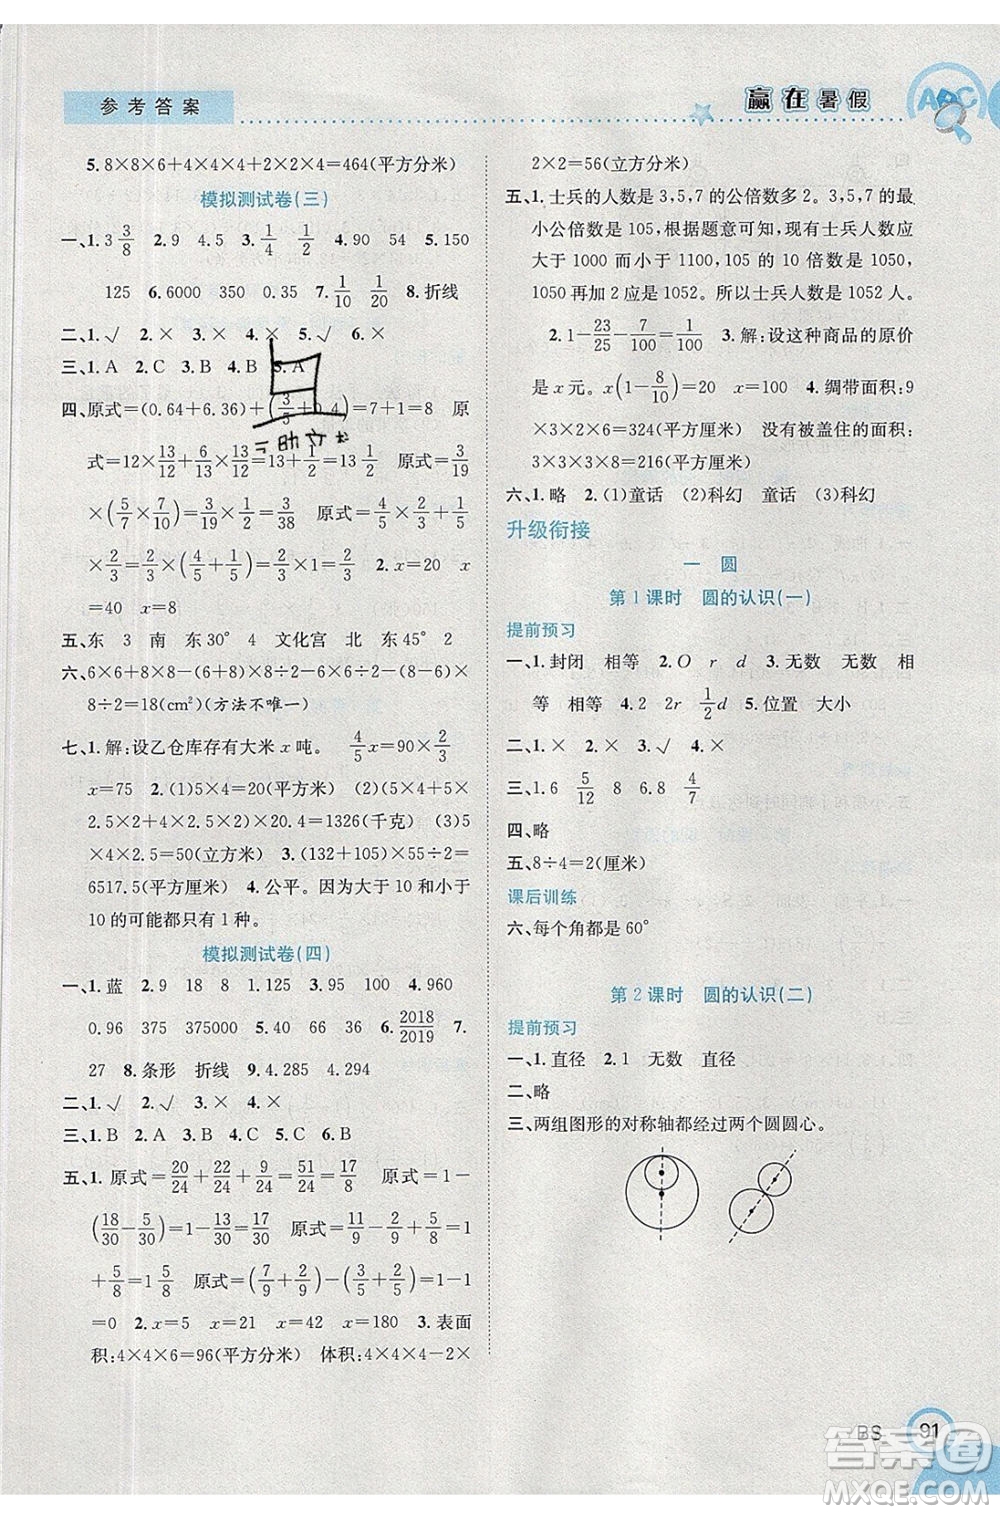 参考答案
赢在暑假
ABC
5.8×8×6+4×4×4+2×2×4=464(平方分米)
模拟测试卷(三)
一、1.3 3/8 2.9 4.5 3.1/4 1/2 4.90 54 5.150
125 6.6000 350 0.35 7.1/10 1/20 8.折线
二、1.√ 2.× 3.× 4.× 5.√ 6.×
三、1.A 2.C 3.B 4.B 5.A
四、原式=(0.64+6.36)+(3/5+0.4)=7+1=8 原
式=12×13/12+6×13/12=13+1/2=13 1/2 原式=3/19
×(5/7×7/10)=3/19×1/2=3/38 原式=4/5×2/3+1/5
×2/3=2/3×(4/5+1/5)=2/3×1=2/3 x=20 x
=40 x=18
五、东 3 南 东30° 4 文化宫 北 东45° 2
六、6×6+8×8-6×(6+8)÷2-6×6÷2-8×
8÷2=18(cm²)(方法不唯一)
七、1.解:设乙仓库存有大米x吨。 4/5 x=90×2/3
x=75 2.(1)5×4=20(平方米) (2)(5×4+5×
2.5×2+4×2.5×2)×20.4=1326(千克) (3)5
×4×2.5=50(立方米) 3.(132+105)×55÷2=
6517.5(平方厘米) 4.公平。因为大于10和小于
10的可能都只有1种。
模拟测试卷(四)
一、1.蓝 2.9 18 8 9 3.95 100 4.960
0.96 375 375000 5.40 36 6.2018/2019 7.
27 8.条形 折线 9.4.285 4.294
二、1.√ 2.√ 3.× 4.×
三、1.B 2.A 3.C 4.B 5.C 6.B
五、1.原式=20/24+22/24-9/24=33/24=11/8 原式=1-
(18/30-5/30)=1-13/30=17/30 原式=1
+5/8=1 5/8 原式=(7/9+2/9)-(3/5+2/5)=1-1
=0 2.x=5 x=21 x=42 x=5 3.表面
积:4×4×6=96(平方分米) 体积:4×4×4-2×
2×2=56(立方分米)
五、1.士兵的人数是3,5,7的公倍数多2。3,5,7的最
小公倍数是105,根据题意可知,现有士兵人数应
大于1000而小于1100,105的10倍数是1050,
1050再加2是1052。所以士兵人数是1052人。
2.1-23/25-7/100=1/100 3.解:设这种商品的原价
是x元。x(1-8/10)=20 x=100 4.绸带面积:9
×3×3×2×6=324(平方厘米) 没有被盖住的面积:
3×3×3×8=216(平方厘米)
六、1.略 2.(1)童话 (2)科幻 童话 (3)科幻
升级衔接
一 圆
第1课时 圆的认识(一)
提前预习
一、1.封闭 相等 2.O r d 3.无数 无数 相
等 相等 4.2 2r 1/2 d 5.位置 大小
二、1.× 2.× 3.√ 4.×
三、1.6 5/12 8 6.8 4/7
四、略
五、8÷4=2(厘米)
课后训练
六、每个角都是60°
第2课时 圆的认识(二)
提前预习
一、1.直径 2.1 无数 直径
二、略
三、两组图形的对称轴都经过两个圆圆心。
BS 91
答案圈
MXQE.COM